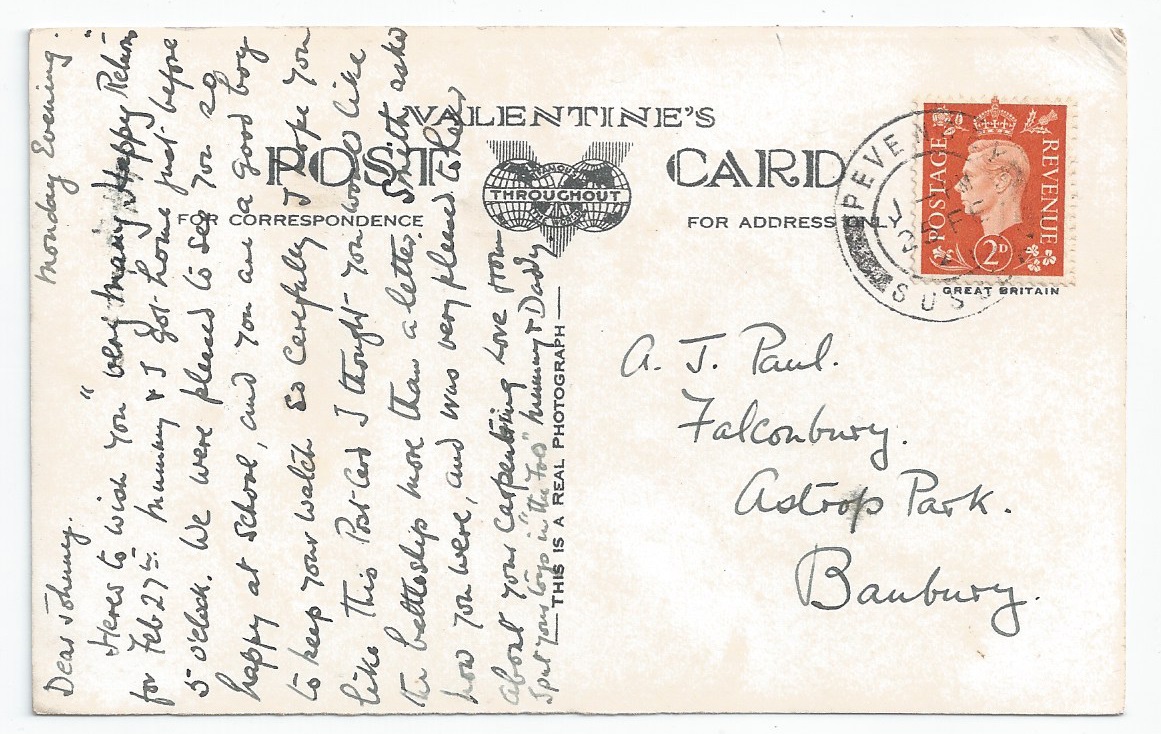 Monday Evening.
Dear Johnny.
Heres to wish you "very many Happy Returns"
for Feb 27th. Mummy & I got home just before
5 o'clock. We were pleased to see you so
happy at School, and you are a good boy
to keep your watch so carefully I hope you
like this Post-Card I thought you would like
the battleship more than a letter. Smith asked
how you were, and was very pleased to hear
about your Carpentering Love from
I put your toys in "the Fols" Mummy & Daddy
VALENTINE'S
POST CARD
FOR CORRESPONDENCE
THROUGHOUT
FOR ADDRESS ONLY
THIS IS A REAL PHOTOGRAPH
POSTAGE REVENUE
2D
GREAT BRITAIN
PEVENSEY
SUSS
A. J. Paul.
Falconbury.
Astrop Park.
Banbury.